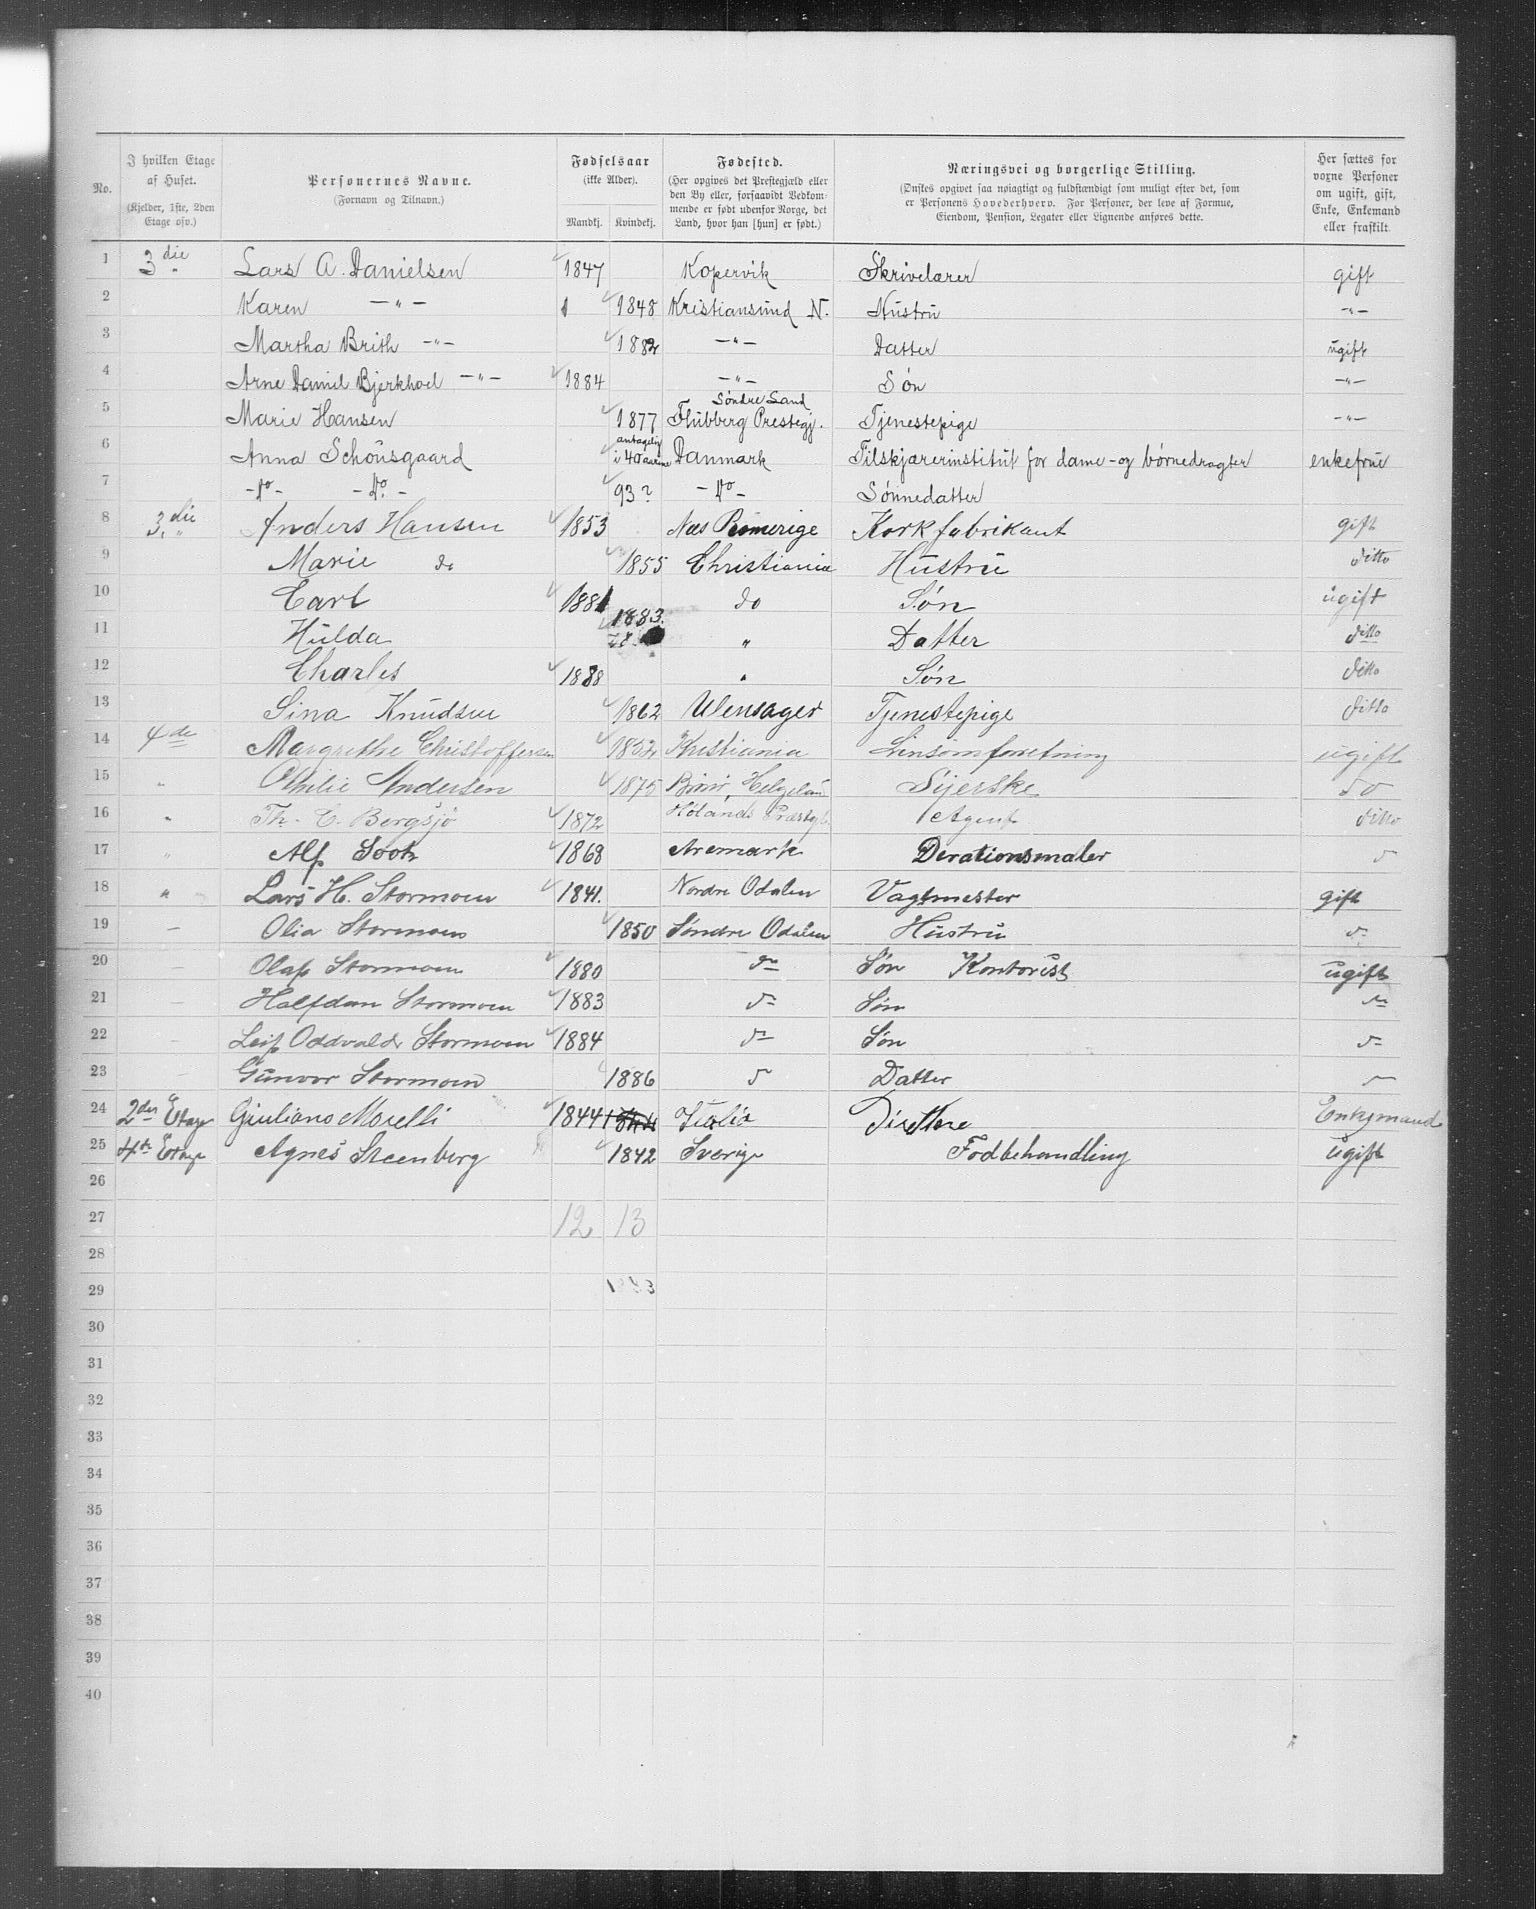 No.
I hvilken Etage af Huset. (Kjelder, 1ste, 2den Etage osv.)
Personernes Navne. (Fornavn og Tilnavn.)
Fødselsaar (ikke Alder). Mandkj. Kvindekj.
Fødested. (Her opgives det Prestegjæld eller den By eller, forsaavidt Vedkommende er født udenfor Norge, det Land, hvor han [hun] er født.)
Næringsvei og borgerlige Stilling. (Ønskes opgivet saa nøiagtigt og fuldstændigt som muligt efter det, som er Personens Hovederhverv. For Personer, der leve af Formue, Eiendom, Pension, Legater eller Lignende anføres dette.
Her sættes for voxne Personer om ugift, gift, Enke, Enkemand eller fraskilt.
1 3die " Lars A. Danielsen 1847 Kopervik Skrivelærer gift
2 Karen -"- 1848 Kristiansund N. Hustru -"-
3 Martha Brith -"- 1882 -"- Datter ugift
4 Arne Daniel Bjerkhoel -"- 1884 -"- Søn -"-
5 Marie Hansen 1877 Søndre Land Flubberg Prestegj. Tjenestepige -"-
6 Anna Schousgaard antagelig i 40 aarene Danmark Tilskjærerinstitut for dame- og børnedragter enkefrue
7 -Do- -Do- 93? -Do- Sønnedatter
8 3die " Anders Hansen 1853 Næs Romerige Korkfabrikant gift
9 Marie do 1855 Christiania Hustru ditto
10 Carl 1881 do Søn ugift
11 Hulda 1883. " Datter ditto
12 Charles 1888 " Søn ditto
13 Sina Knudsen 1862 Ulensager Tjenestepige ditto
14 4de Margrethe Christoffersen 1852 Kristiania Linsømforretning ugift
15 " Othilie Andersen 1875 Helgeland Sijerske do
16 " Th. C. Bergsjö 1872 Hølands Præstgj. Agent ditto
17 " Alf Sooth 1868 Aremark Derationsmaler d
18 " Lars H. Stormoen 1841. Nordre Odalen Vagtmester gift
19 - Olia Stormoen 1850 Søndre Odalen Hustru do
20 - Olaf Stormoen 1880 do Søn Kontorist ugift
21 - Halfdan Stormoen 1883 do Søn do
22 - Leif Oddvald Stormoen 1884 do Søn do
23 Gunvor Stormoen 1886 d Datter d
24 2den Etage Giuliano Morelli 1844 1844 Italia Direttore Enkemand
25 4de Etage Agnes Steenberg 1842 Sverige Fodbehandling ugift
26
27 12 13
28
29
30
31
32
33
34
35
36
37
38
39
40